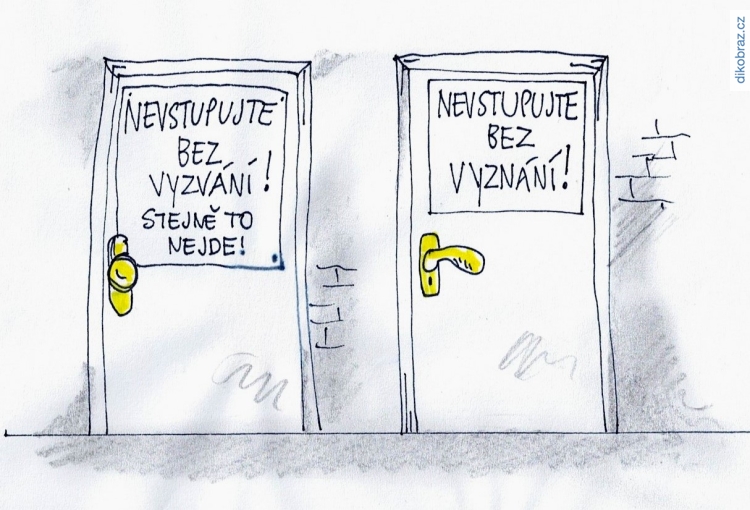 dikobraz.cz
NEVSTUPUJTE
BEZ
VYZVÁNÍ!
STEJNĚ TO
NEJDE!
NEVSTUPUJTE
BEZ
VYZNÁNÍ!